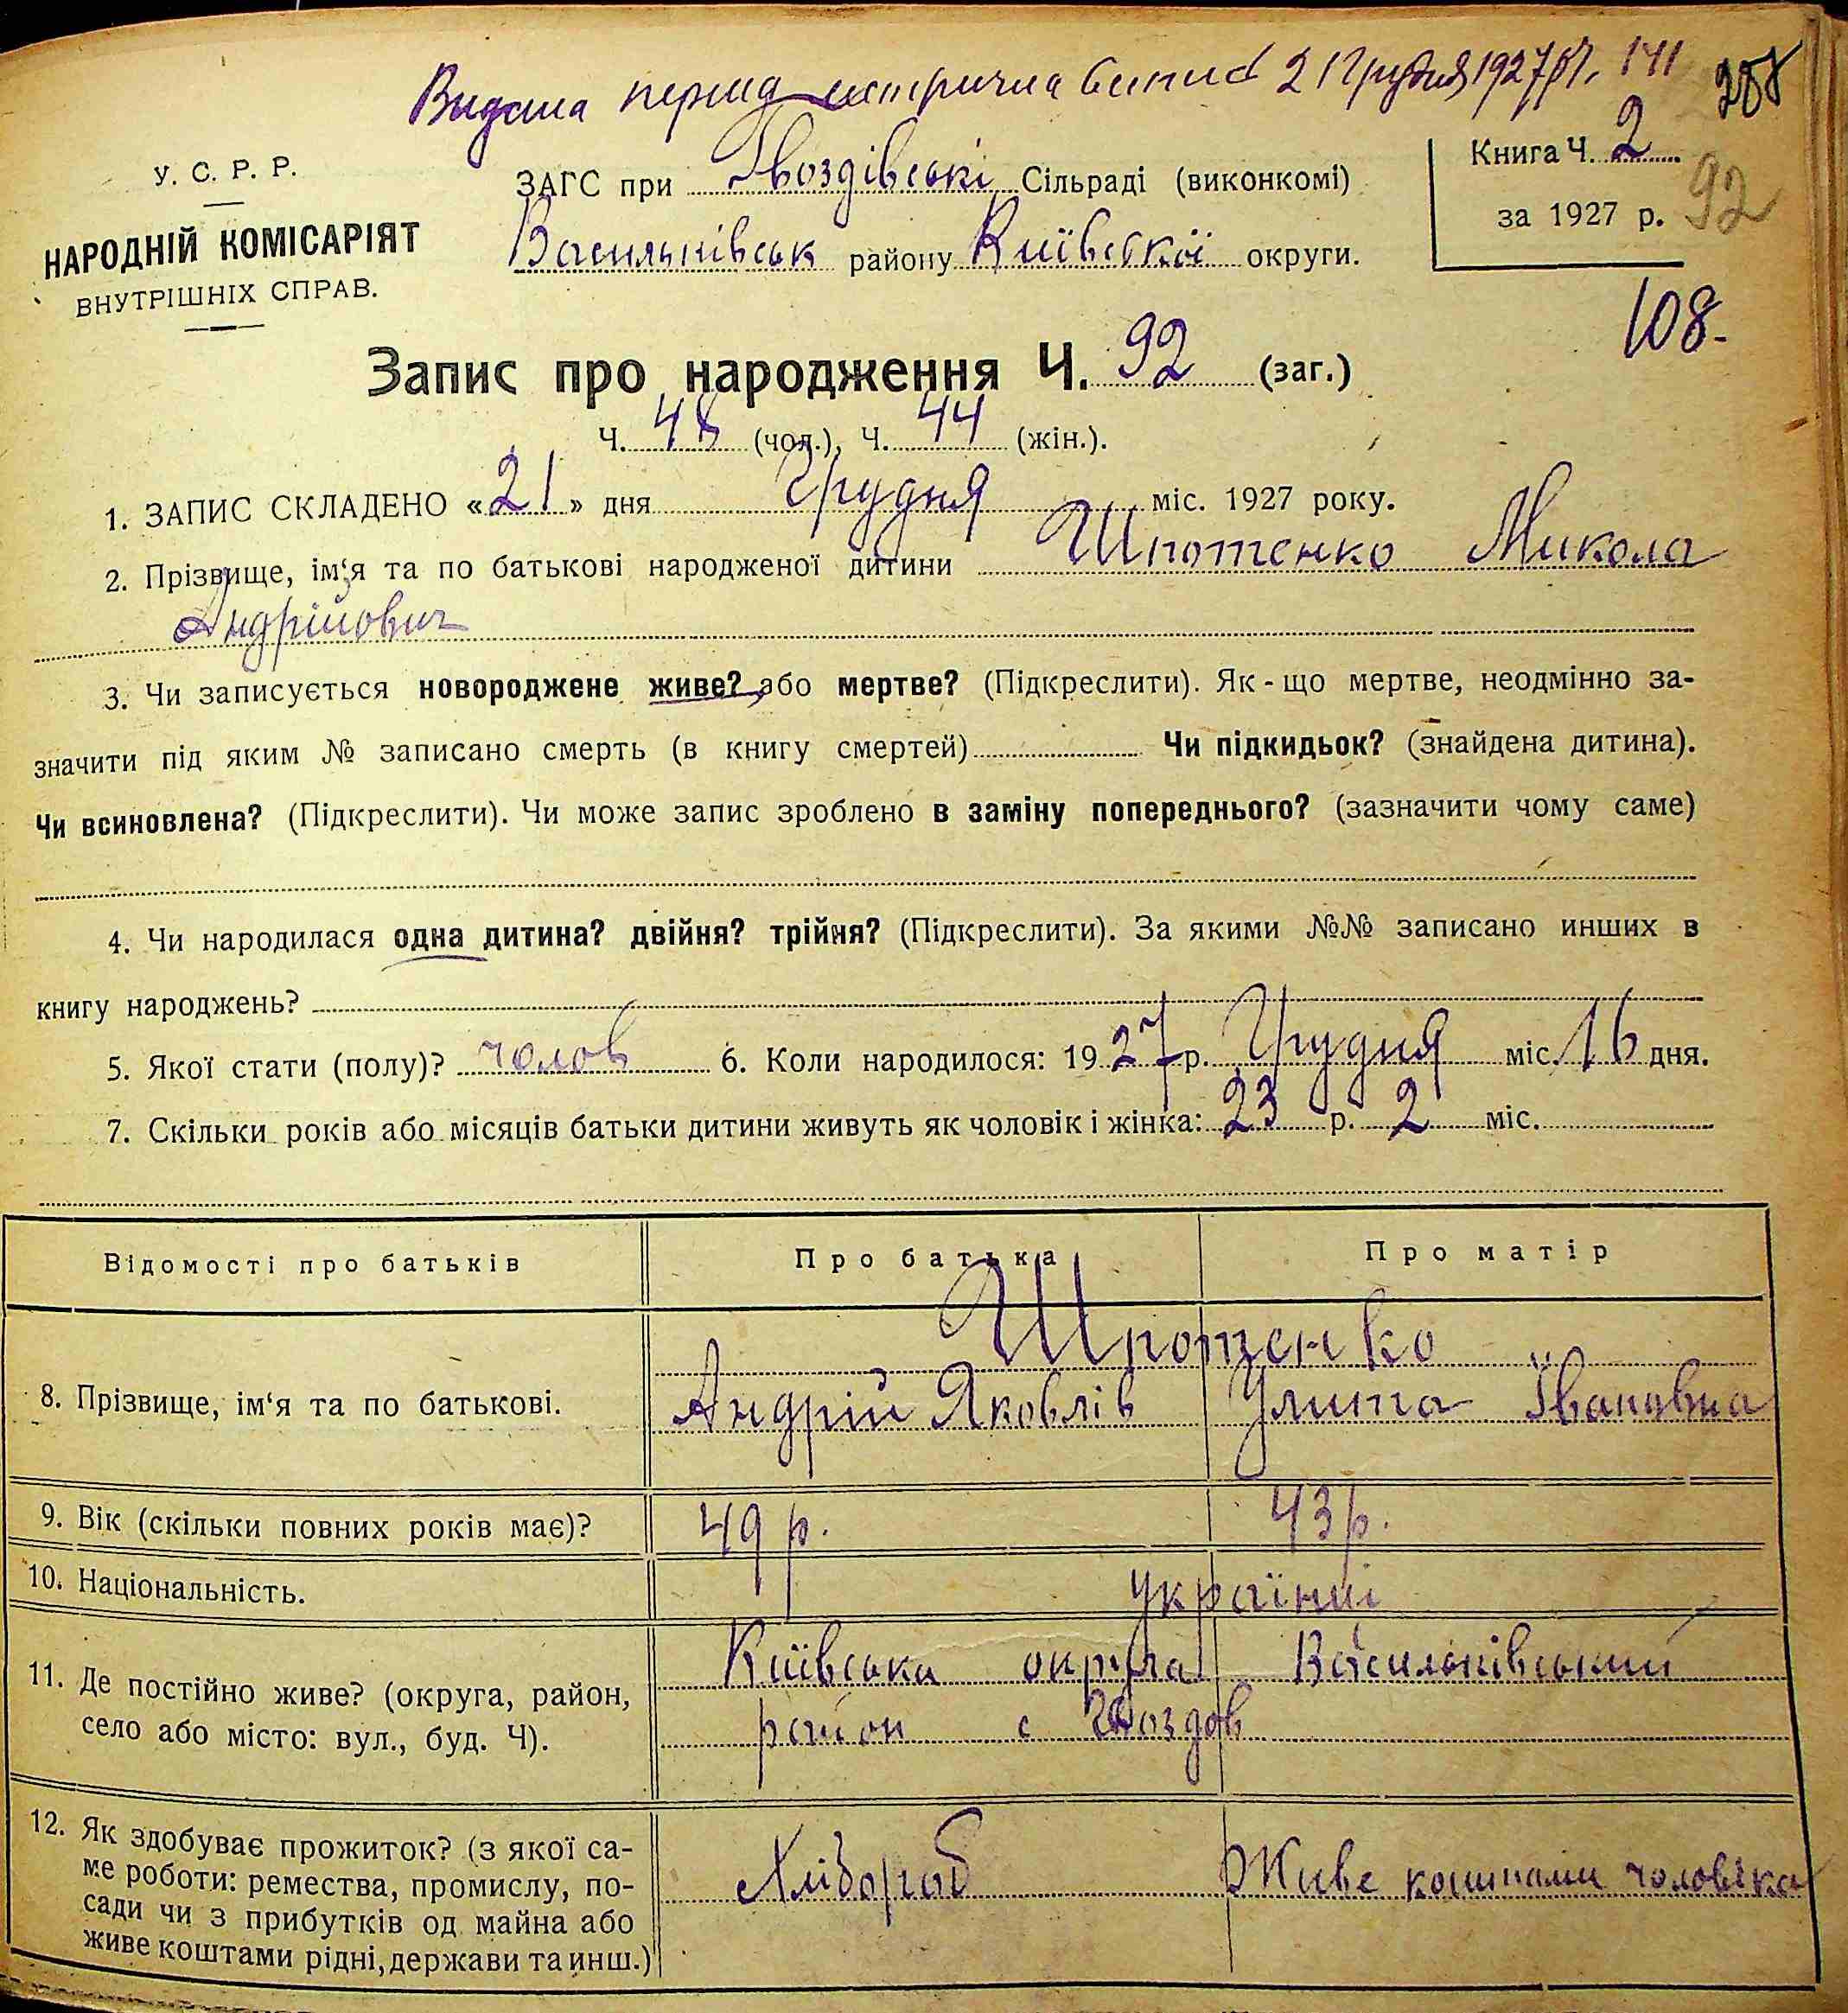 Видана перша метрична випис 21 Грудня 1927 р. 141
У. С. Р. Р.
НАРОДНІЙ КОМІСАРІЯТ
ВНУТРІШНІХ СПРАВ.
ЗАГС при Гвоздівські Сільраді (виконкомі)
Васильківськ району Київської округи.
Книга Ч. 2
за 1927 р.
92
108-
Запис про народження Ч. 92 (заг.)
Ч. 48 (чол.), Ч. 44 (жін.).
1. ЗАПИС СКЛАДЕНО «21» дня Грудня міс. 1927 року.
2. Прізвище, ім‘я та по батькові народженої дитини Шпотенко Микола
Андрійович
3. Чи записується новороджене живе? або мертве? (Підкреслити). Як-що мертве, неодмінно за-
значити під яким № записано смерть (в книгу смертей) Чи підкидьок? (знайдена дитина).
Чи всиновлена? (Підкреслити). Чи може запис зроблено в заміну попереднього? (зазначити чому саме)
4. Чи народилася одна дитина? двійня? трійня? (Підкреслити). За якими №№ записано инших в
книгу народжень?
5. Якої стати (полу)? чолов 6. Коли народилося: 1927 р. Грудня міс. 16 дня.
7. Скільки років або місяців батьки дитини живуть як чоловік і жінка: 23 р. 2 міс.
Відомості про батьків Про батька Про матір
Шпотенко
8. Прізвище, ім‘я та по батькові. Андрій Яковлів Улита Івановна
9. Вік (скільки повних років має)? 49 р. 43 р.
10. Національність. українці
Київська округа Васильківський
11. Де постійно живе? (округа, район,
район с Гвоздов
село або місто: вул., буд. Ч).
12. Як здобуває прожиток? (з якої са-
ме роботи: ремества, промислу, по- Хлібороб Живе коштами чоловіка
сади чи з прибутків од майна або
живе коштами рідні, держави та инш.)